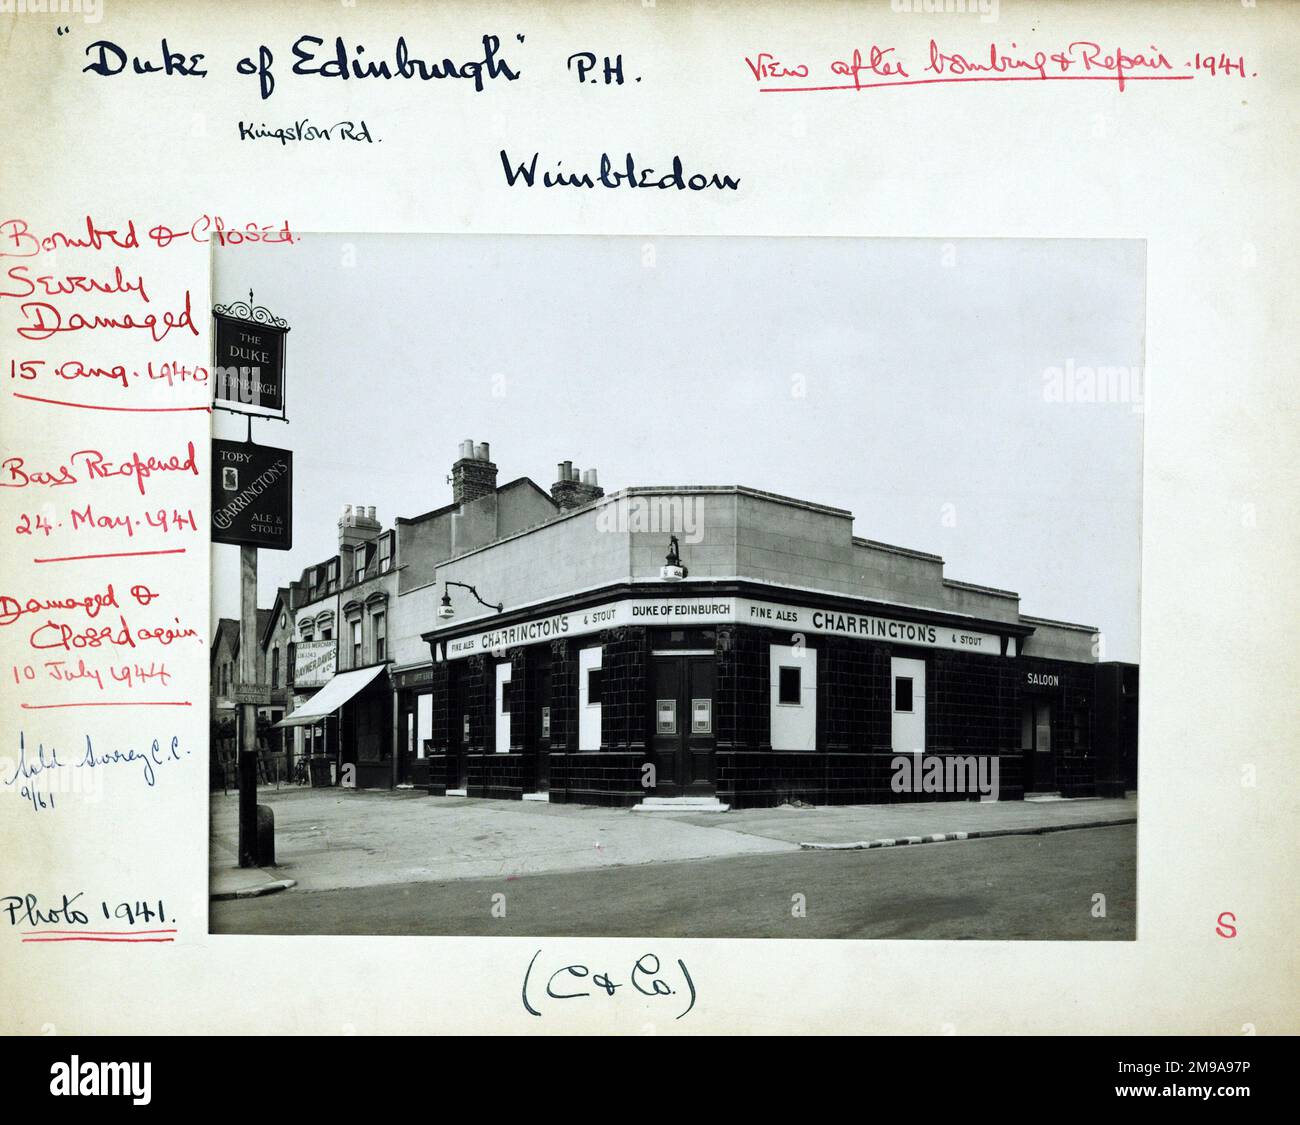 "Duke of Edinburgh" P.H.
View after bombing & Repair. 1941.
Kingston Rd.
Wimbledon
Bombed & Closed.
Severely
Damaged
15. Aug. 1940
Bars Reopened
24. May. 1941
Damaged &
Closed again,
10 July 1944
Sold Surrey C.C.
9/61
Photo 1941.
THE
DUKE
OF
EDINBURGH
TOBY
CHARRINGTON'S
ALE &
STOUT
GLASS MERCHANTS
RAYNER, DAVIES
& CO.
FINE ALES CHARRINGTON'S & STOUT
DUKE OF EDINBURGH
FINE ALES CHARRINGTON'S & STOUT
SALOON
S
(C & Co.)
alamy
alamy
Image ID: 2M9A97P
www.alamy.com